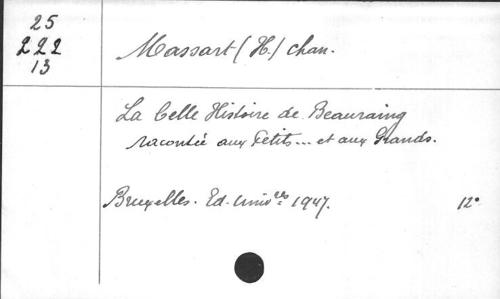 25
222
13
Massart (H.) chan.
La belle Histoire de Beauraing
racontée aux Petits... et aux Grands.
Bruxelles. Ed. Univ.elles 1947. 12°